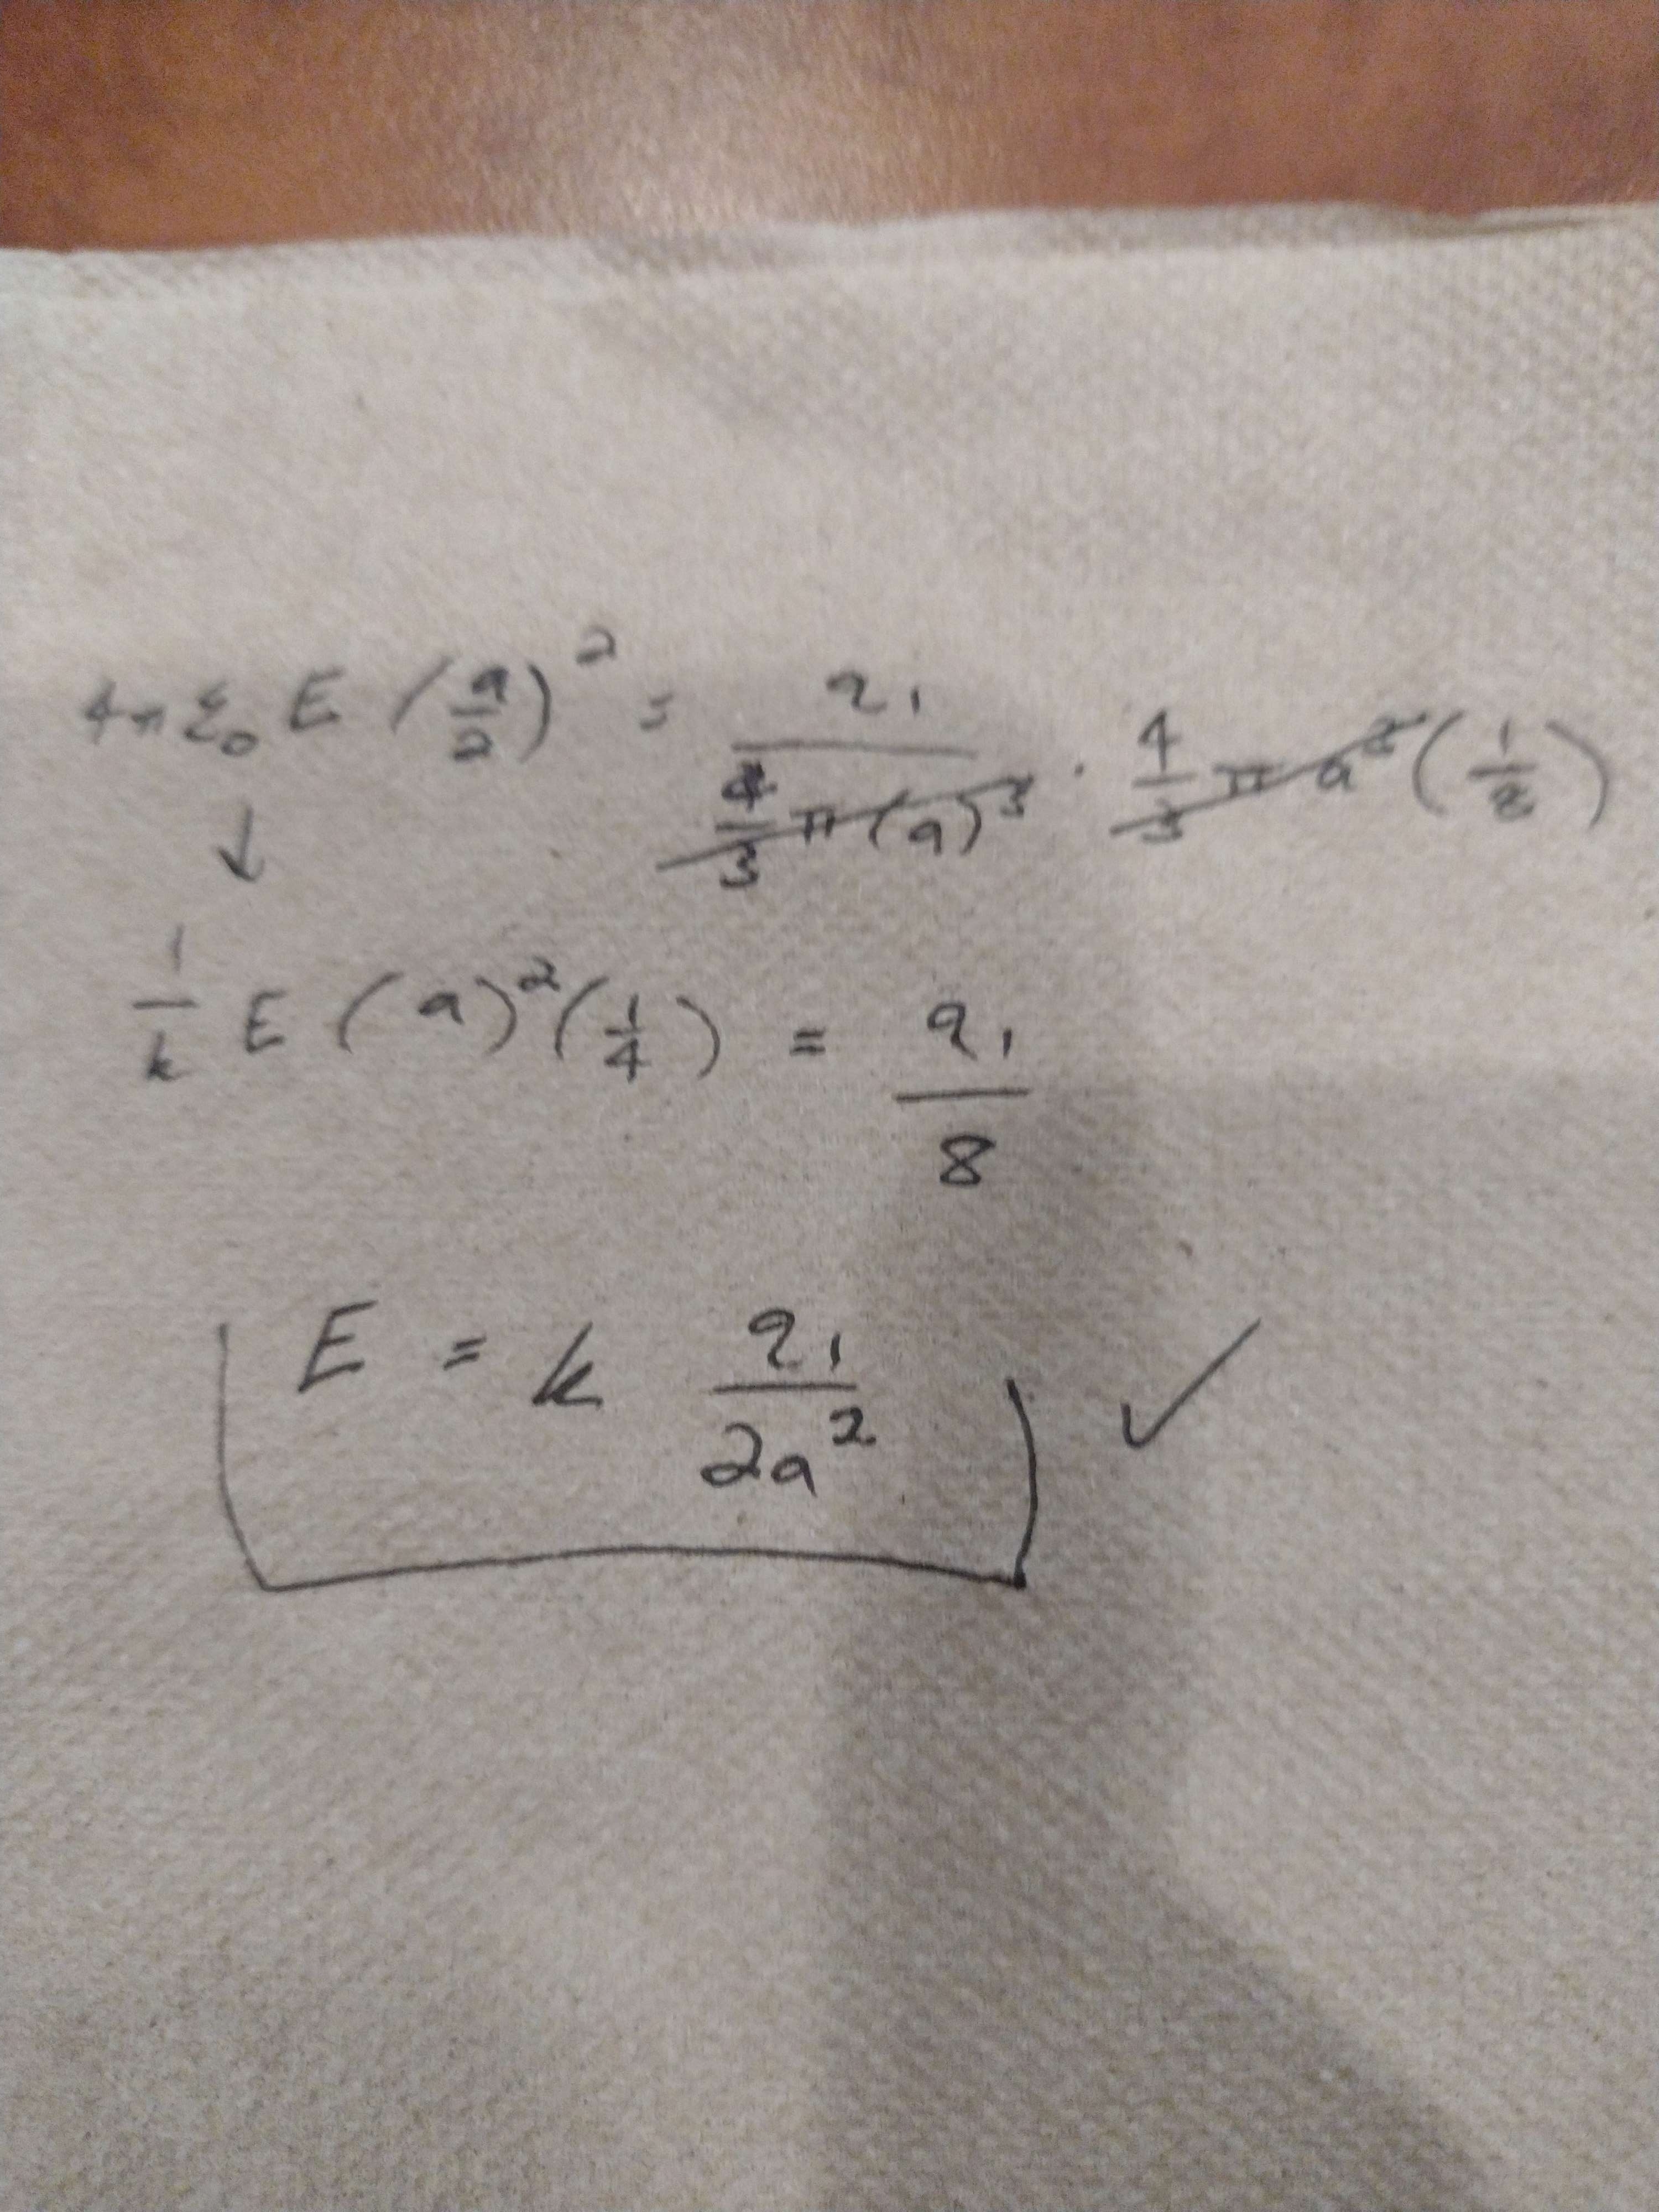 4πε₀ E (a/2)² = q₁ / (4/3 π (a)³) · 4/3 π a³ (1/8)
↓
1/k E (a)² (1/4) = q₁/8
E = k q₁/2a² ✓